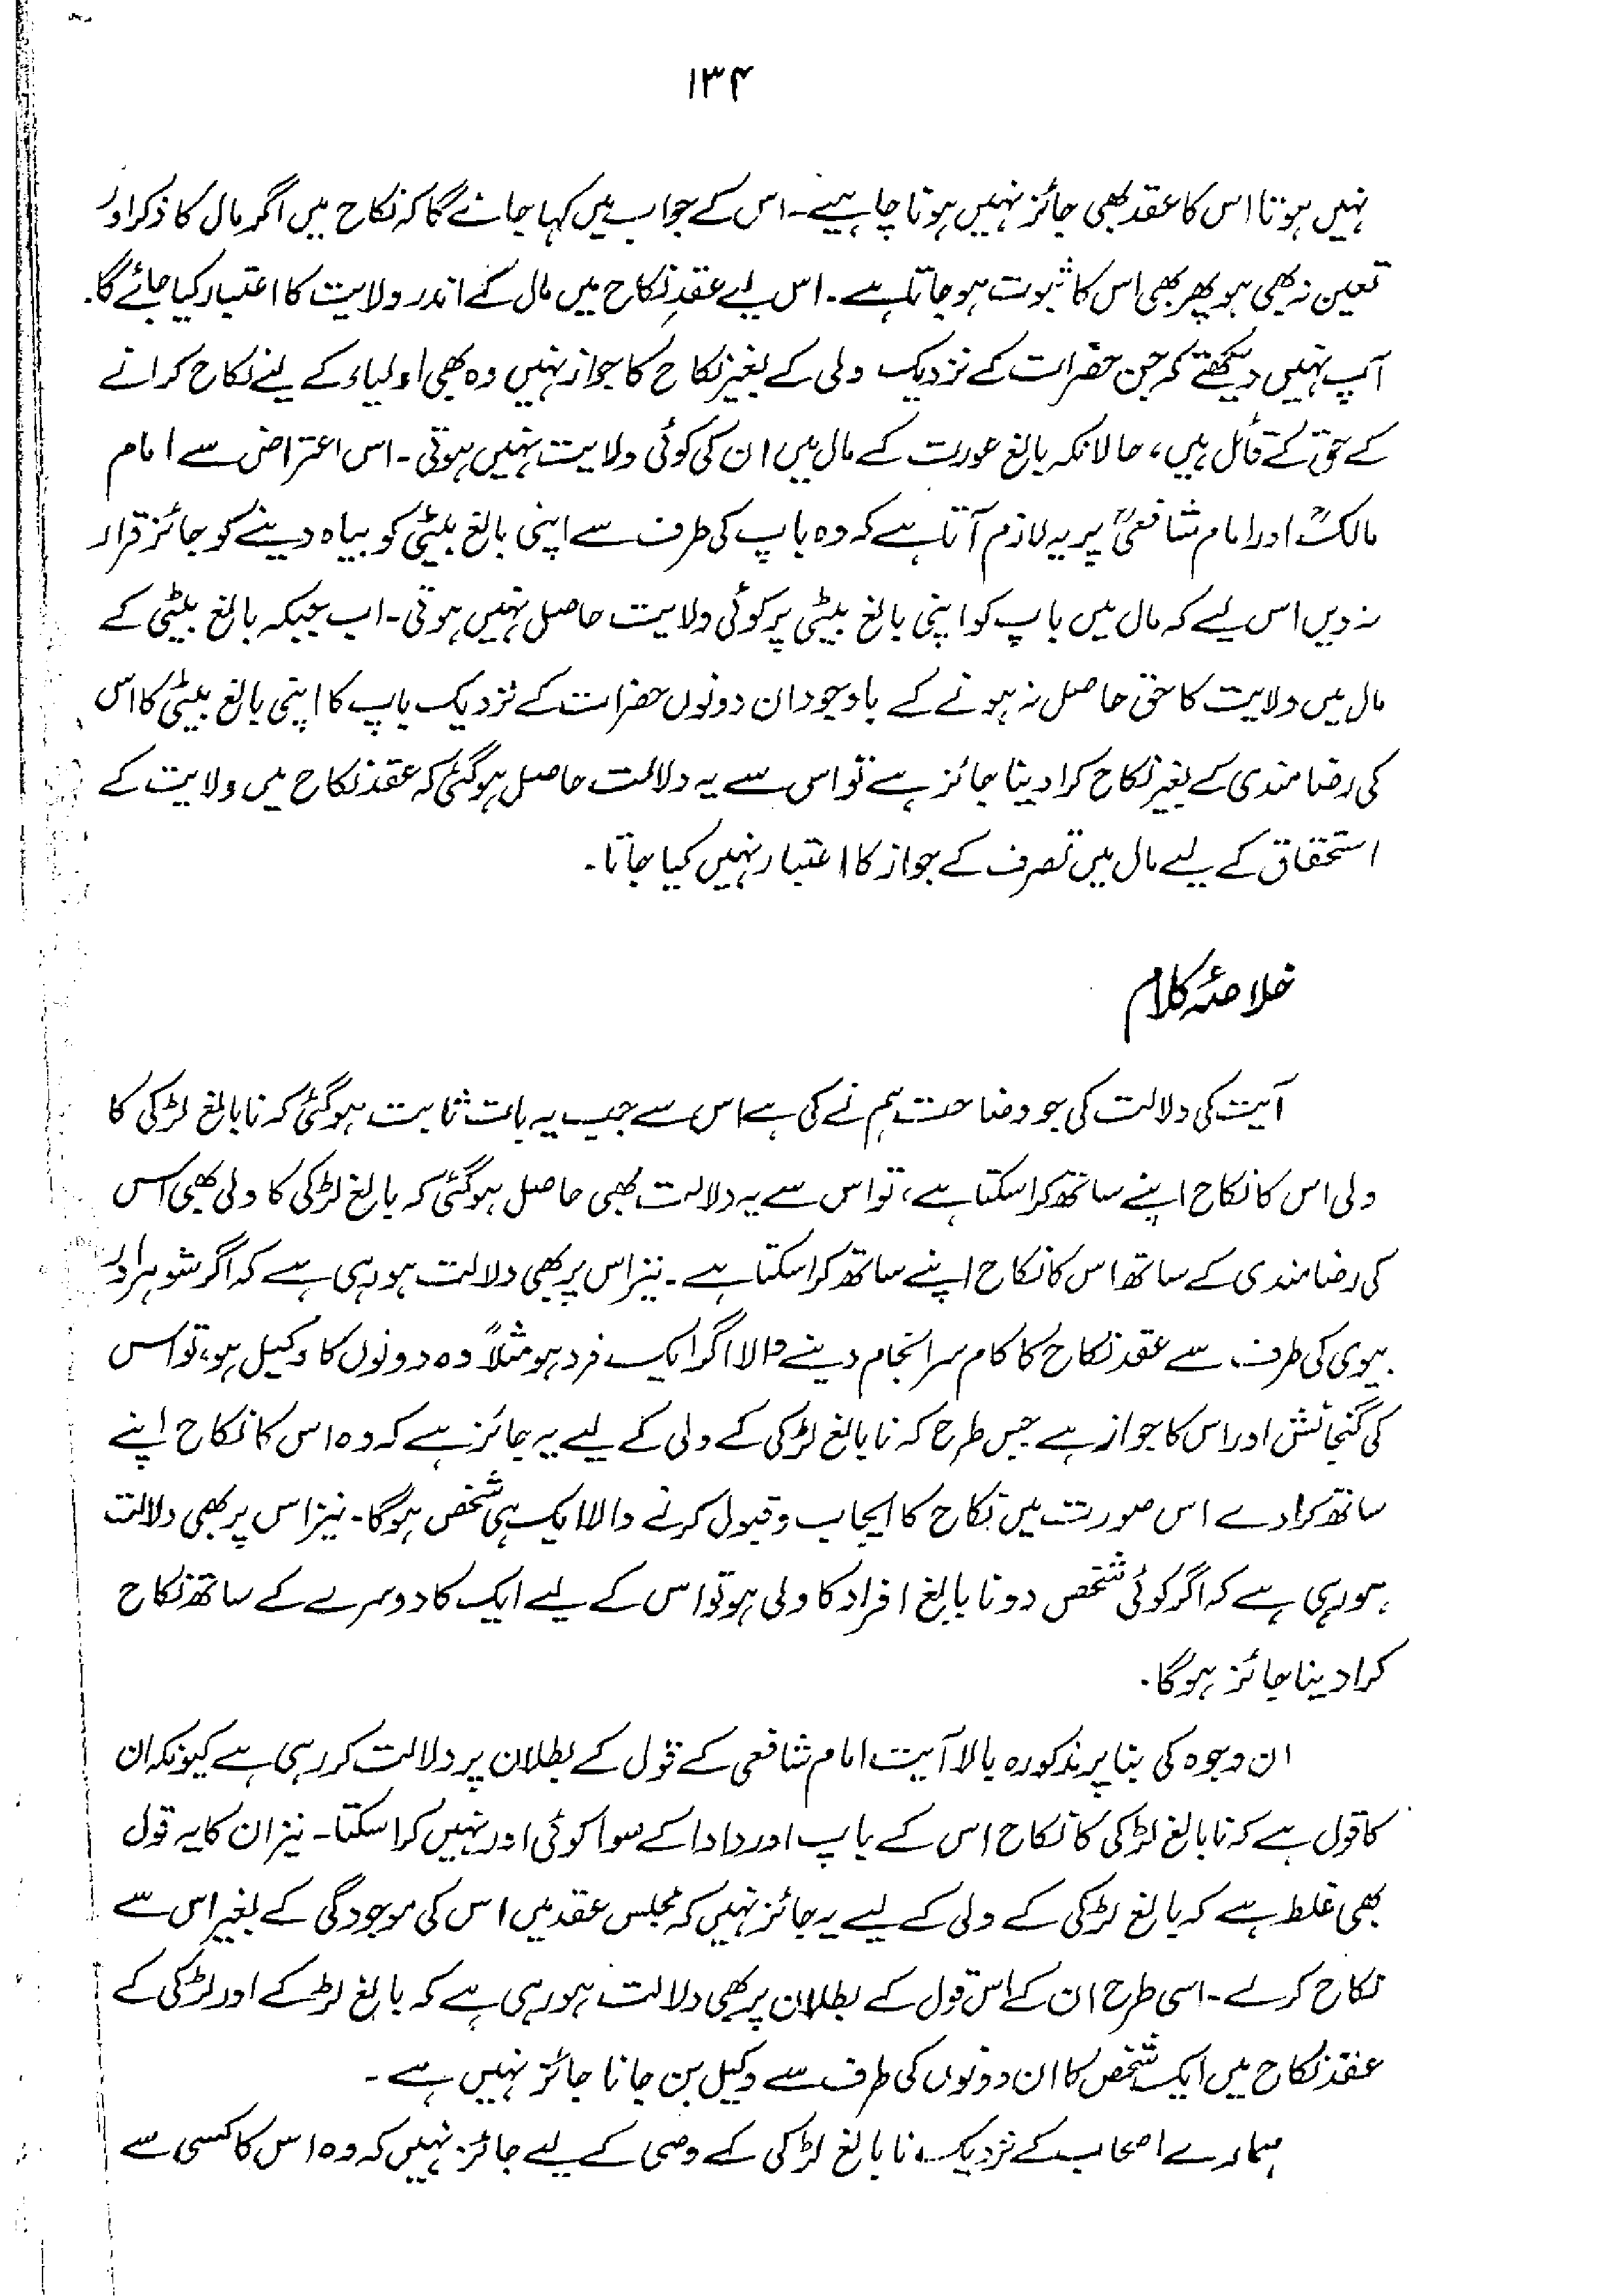 ۱۳۴
نہیں ہوتا اس کا عقد بھی جائز نہیں ہونا چاہیے۔ اس کے جواب میں کہا جائے گا کہ نکاح میں اگر مال کا ذکر اور
تعین نہ بھی ہو پھر بھی اس کا ثبوت ہو جاتا ہے۔ اس لیے عقدِ نکاح میں مال کے اندر ولایت کا اعتبار کیا جائے گا۔
آپ نہیں دیکھتے کہ جن حضرات کے نزدیک ولی کے بغیر نکاح کا جواز نہیں وہ بھی اولیاء کے لیے نکاح کرانے
کے حق کے قائل ہیں، حالانکہ بالغ عورت کے مال میں ان کی کوئی ولایت نہیں ہوتی۔ اس اعتراض سے امام
مالکؒ اور امام شافعیؒ پر یہ لازم آتا ہے کہ وہ باپ کی طرف سے اپنی بالغ بیٹی کو بیاہ دینے کو جائز قرار
نہ دیں اس لیے کہ مال میں باپ کو اپنی بالغ بیٹی پر کوئی ولایت حاصل نہیں ہوتی۔ اب جبکہ بالغ بیٹی کے
مال میں ولایت کا حق حاصل نہ ہونے کے باوجود ان دونوں حضرات کے نزدیک باپ کا اپنی بالغ بیٹی کا اس
کی رضامندی کے بغیر نکاح کرا دینا جائز ہے تو اس سے یہ دلالت حاصل ہوگئی کہ عقد نکاح میں ولایت کے
استحقاق کے لیے مال میں تصرف کے جواز کا اعتبار نہیں کیا جاتا۔
خلاصۂ کلام
آیت کی دلالت کی جو وضاحت ہم نے کی ہے اس سے جب یہ بات ثابت ہوگئی کہ نابالغ لڑکی کا
ولی اس کا نکاح اپنے ساتھ کرا سکتا ہے، تو اس سے یہ دلالت بھی حاصل ہوگئی کہ بالغ لڑکی کا ولی بھی اس
کی رضامندی کے ساتھ اس کا نکاح اپنے ساتھ کرا سکتا ہے۔ نیز اس پر بھی دلالت ہو رہی ہے کہ اگر شوہر اور
بیوی کی طرف سے عقد نکاح کا کام سرانجام دینے والا اگر ایک فرد ہو مثلاً وہ دونوں کا وکیل ہو، تو اس
کی گنجائش اور اس کا جواز ہے جس طرح کہ نابالغ لڑکی کے ولی کے لیے یہ جائز ہے کہ وہ اس کا نکاح اپنے
ساتھ کرا دے اس صورت میں نکاح کا ایجاب و قبول کرنے والا ایک ہی شخص ہوگا۔ نیز اس پر بھی دلالت
ہو رہی ہے کہ اگر کوئی شخص دو نابالغ افراد کا ولی ہو تو اس کے لیے ایک کا دوسرے کے ساتھ نکاح
کرا دینا جائز ہوگا۔
ان وجوہ کی بنا پر مذکورہ بالا آیت امام شافعی کے قول کے بطلان پر دلالت کر رہی ہے کیونکہ ان
کا قول ہے کہ نابالغ لڑکی کا نکاح اس کے باپ اور دادا کے سوا کوئی اور نہیں کرا سکتا۔ نیز ان کا یہ قول
بھی غلط ہے کہ بالغ لڑکی کے ولی کے لیے یہ جائز نہیں کہ مجلس عقد میں اس کی موجودگی کے بغیر اس سے
نکاح کرلے۔ اسی طرح ان کے اس قول کے بطلان پر بھی دلالت ہو رہی ہے کہ بالغ لڑکے اور لڑکی کے
عقد نکاح میں ایک شخص کا ان دونوں کی طرف سے وکیل بن جانا جائز نہیں ہے۔
ہمارے اصحاب کے نزدیک نابالغ لڑکی کے وصی کے لیے جائز نہیں کہ وہ اس کا کسی سے